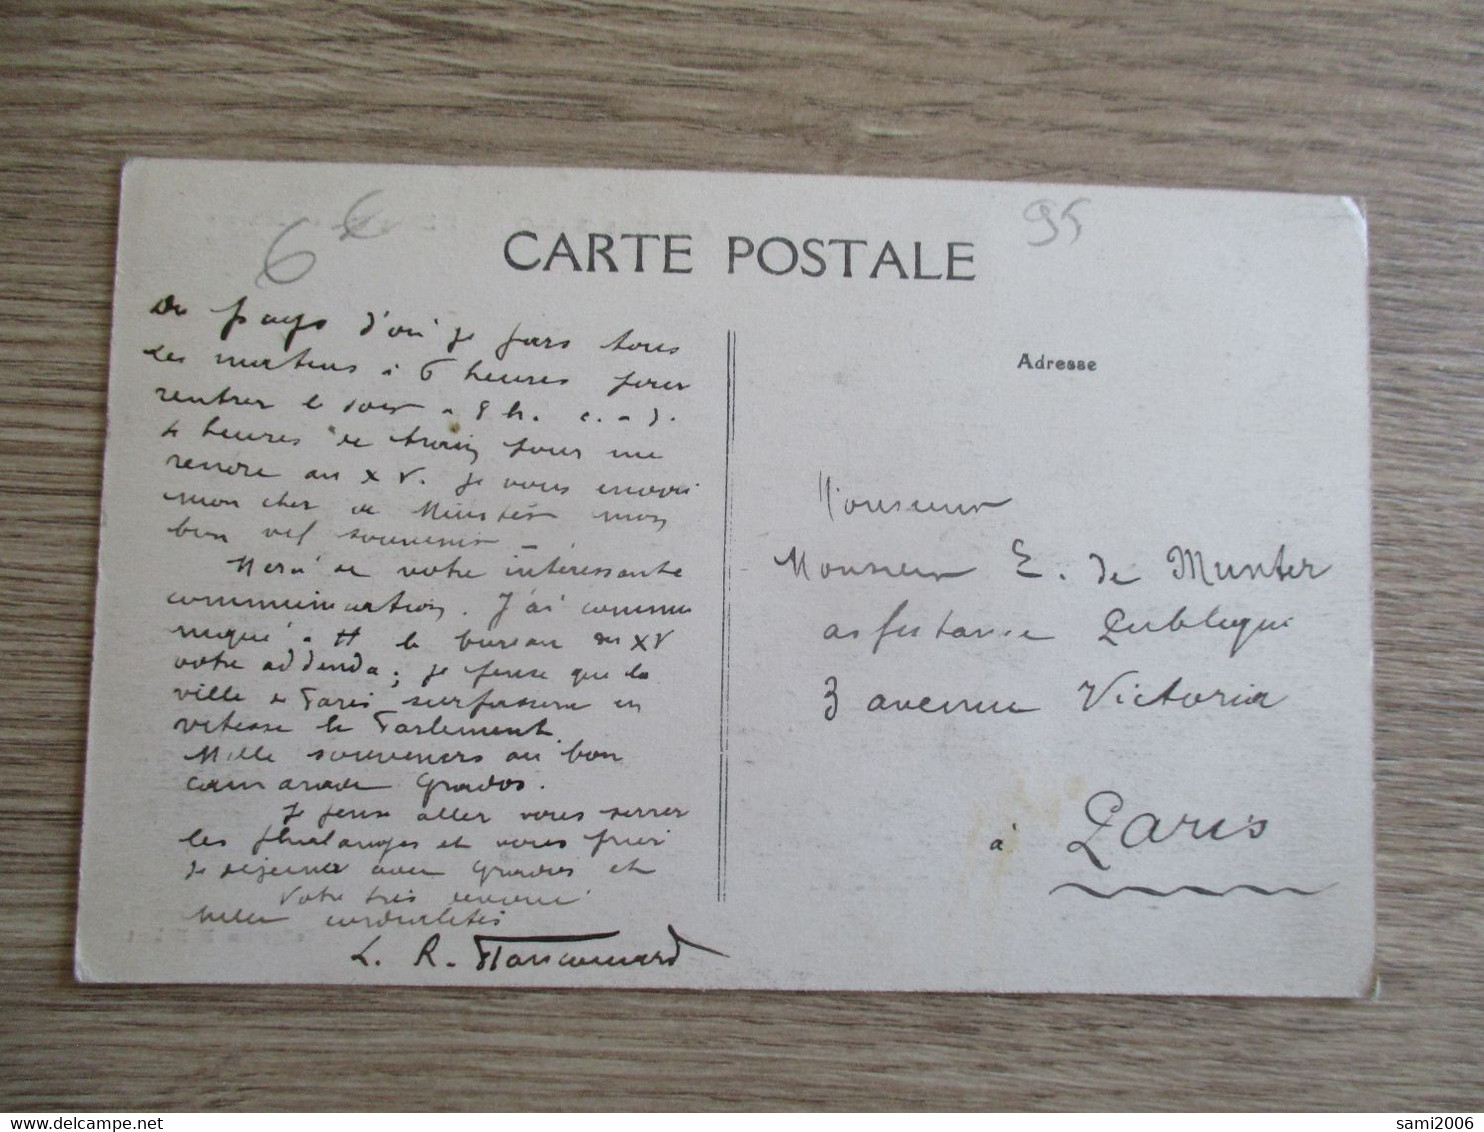 6€
95
CARTE POSTALE
Du pays d'où je pars tous
les matins à 6 heures pour
rentrer le soir à 8 h. c. à d.
4 heures de train pour me
rendre au XV. Je vous envoie
mon cher de Munster mon
bon vif souvenir
Merci de votre intéressante
communication. J'ai commu
niqué à le bureau du XV
votre addenda ; je pense que la
ville de Paris surpassera en
vitesse le Parlement.
Mille souvenirs au bon
camarade Grados.
Je pense aller vous serrer
les phalanges et vous prier
de déjeuner avec Grados et
Votre très
cordialités
L. R.
Adresse
Monsieur
Monsieur E. de Munter
assistance Publique
3 avenue Victoria
à Paris
sami2006